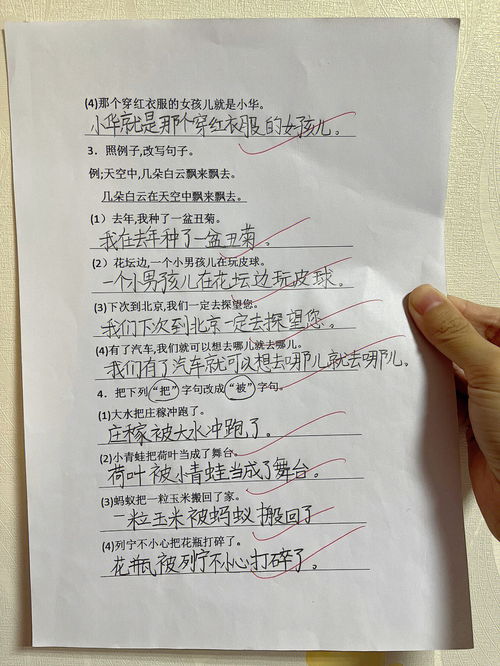 (4)那个穿红衣服的女孩儿就是小华。
小华就是那个穿红衣服的女孩儿。
3．照例子,改写句子。
例;天空中,几朵白云飘来飘去。
几朵白云在天空中飘来飘去。
(1）去年,我种了一盆丑菊。
我在去年种了一盆丑菊。
(2）花坛边,一个小男孩在玩皮球。
一个小男孩儿在花坛边玩皮球。
(3)下次到北京,我们一定去探望您。
我们下次到北京一定去探望您。
(4)有了汽车,我们就可以想去哪儿就去哪儿。
我们有了汽车就可以想去哪儿就去哪儿。
4．把下列“把”字句改成“被”字句。
(1)大水把庄稼冲跑了。
庄稼被大水冲跑了。
(2)小青蛙把荷叶当成了舞台。
荷叶被小青蛙当成了舞台。
(3)蚂蚁把一粒玉米搬回了家。
一粒玉米被蚂蚁搬回了
(4)列宁不小心把花瓶打碎了。
花瓶被列宁不小心打碎了。